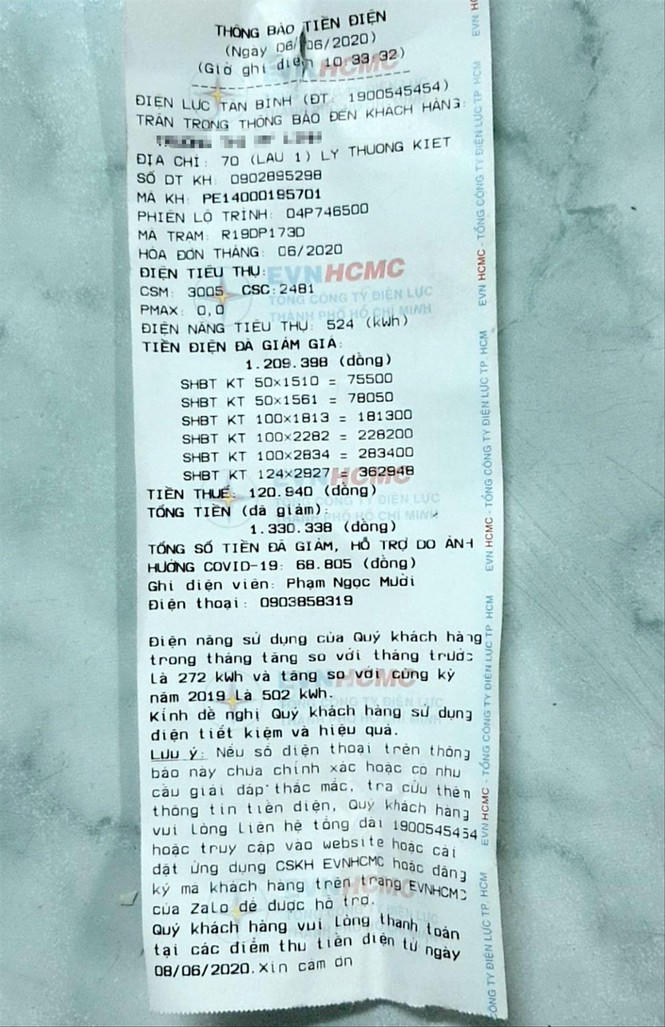 THÔNG BÁO TIỀN ĐIỆN
(Ngày 06/06/2020)
(Giờ ghi điện 10:33:32)
ĐIỆN LỰC TÂN BÌNH (ĐT: 1900545454)
TRÂN TRỌNG THÔNG BÁO ĐẾN KHÁCH HÀNG:
ĐỊA CHỈ: 70 (LẦU 1) LÝ THƯỜNG KIỆT
SỐ DT KH: 0902895298
MÃ KH: PE14000195701
PHIÊN LỘ TRÌNH: 04P746500
MÃ TRẠM: R19DP173D
HÓA ĐƠN THÁNG: 06/2020
ĐIỆN TIÊU THỤ:
CSM: 3005 CSC:2481
PMAX: 0,0
ĐIỆN NĂNG TIÊU THỤ: 524 (kWh)
TIỀN ĐIỆN ĐÃ GIẢM GIÁ:
1.209.398 (đồng)
SHBT KT 50x1510 = 75500
SHBT KT 50x1561 = 78050
SHBT KT 100x1813 = 181300
SHBT KT 100x2282 = 228200
SHBT KT 100x2834 = 283400
SHBT KT 124x2927 = 362948
TIỀN THUẾ: 120.940 (đồng)
TỔNG TIỀN (đã giảm):
1.330.338 (đồng)
TỔNG SỐ TIỀN ĐÃ GIẢM, HỖ TRỢ DO ẢNH
HƯỞNG COVID-19: 68.805 (đồng)
Ghi điện viên: Phạm Ngọc Mười
Điện thoại: 0903858319
Điện năng sử dụng của Quý khách hàng
trong tháng tăng so với tháng trước
là 272 kWh và tăng so với cùng kỳ
năm 2019 là 502 kWh.
Kính đề nghị Quý khách hàng sử dụng
điện tiết kiệm và hiệu quả.
Lưu ý: Nếu số điện thoại trên thông
báo này chưa chính xác hoặc có nhu
cầu giải đáp thắc mắc, tra cứu thêm
thông tin tiền điện, Quý khách hàng
vui lòng liên hệ tổng đài 1900545454
hoặc truy cập vào website hoặc cài
đặt ứng dụng CSKH EVNHCMC hoặc đăng
ký mã khách hàng trên trang EVNHCMC
của Zalo để được hỗ trợ.
Quý khách hàng vui lòng thanh toán
tại các điểm thu tiền điện từ ngày
08/06/2020.Xin cảm ơn
EVNHCMC
TỔNG CÔNG TY ĐIỆN LỰC
THÀNH PHỐ HỒ CHÍ MINH
EVN HCMC - TỔNG CÔNG TY ĐIỆN LỰC TP. HCM